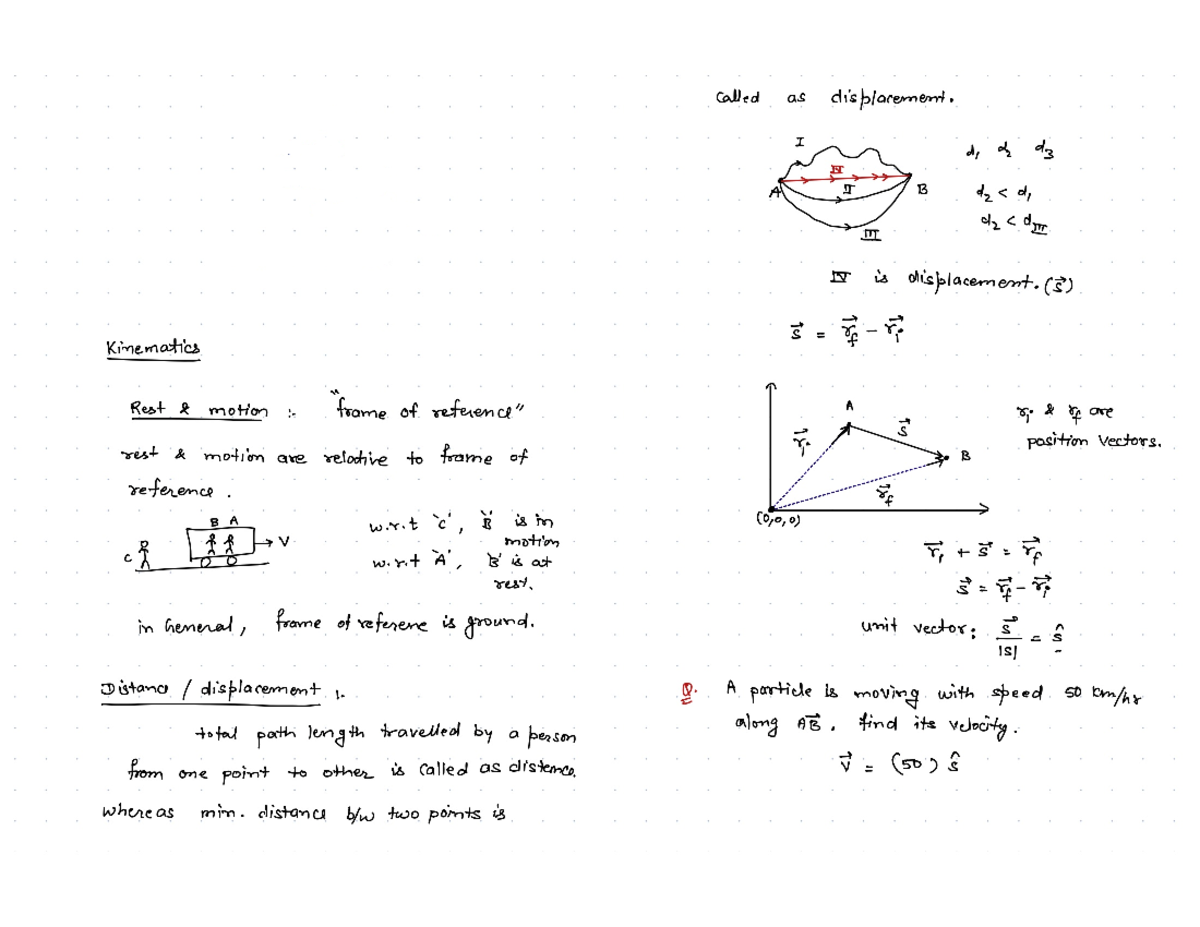 Kinematics
Rest & motion :- "frame of reference"
rest & motion are relative to frame of
reference.
B A
C
V
w.r.t 'C', 'B' is in
motion
w.r.t 'A', 'B' is at
rest.
in General, frame of referene is ground.
Distance / displacement :-
total path length travelled by a person
from one point to other is called as distance.
whereas min. distance b/w two points is
called as displacement.
I
IV
II
A
B
III
d₁ d₂ d₃
d₂ < d₁
d₂ < d_III
IV is displacement. (s⃗)
s⃗ = r⃗_f - r⃗_i
A
r⃗_i
s⃗
B
r⃗_f
(0,0,0)
r_i & r_f are
position vectors.
r⃗_i + s⃗ = r⃗_f
s⃗ = r⃗_f - r⃗_i
unit vector: s⃗ / |s| = ŝ
Q. A particle is moving with speed 50 km/hr
along AB⃗. find its velocity.
v⃗ = (50) ŝ